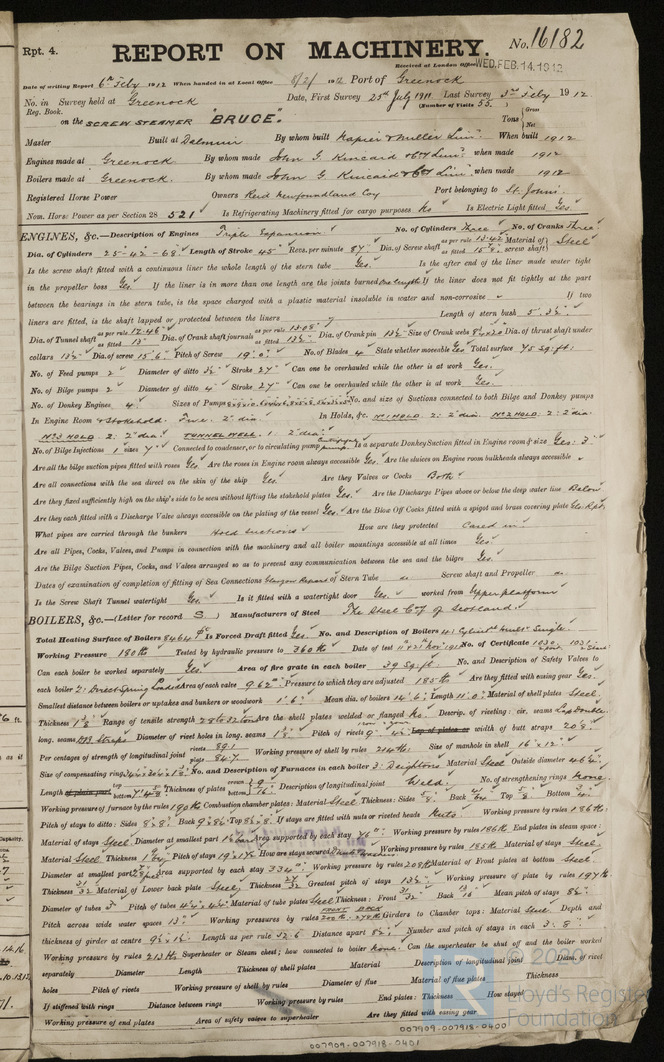 Rpt. 4.
REPORT ON MACHINERY.
No. 16182
Received at London Office WED. FEB. 14. 1912
Date of writing Report 6th Feby 1912 When handed in at Local Office 8/2/1912 Port of Greenock
No. in Survey held at Greenock Date, First Survey 25th July 1911 Last Survey 3rd Feby 1912
Reg. Book. (Number of Visits 55.)
on the SCREW STEAMER "BRUCE". Tons Gross Net
Master Built at Dalmuir By whom built Napier & Miller Limd. When built 1912
Engines made at Greenock By whom made John G. Kincaid & Coy Limd. when made 1912
Boilers made at Greenock. By whom made John G. Kincaid & Coy Limd. when made 1912
Registered Horse Power Owners Reid Newfoundland Coy Port belonging to St. Johns.
Nom. Horse Power as per Section 28 521 Is Refrigerating Machinery fitted for cargo purposes No Is Electric Light fitted Yes.
ENGINES, &c.—Description of Engines Triple Expansion. No. of Cylinders Three No. of Cranks Three
Dia. of Cylinders 25"-42"-68" Length of Stroke 45" Revs. per minute 87 Dia. of Screw shaft as per rule 13.42 as fitted Material of screw shaft Steel
Is the screw shaft fitted with a continuous liner the whole length of the stern tube Yes. Is the after end of the liner made water tight
in the propeller boss Yes. If the liner is in more than one length are the joints burned one length If the liner does not fit tightly at the part
between the bearings in the stern tube, is the space charged with a plastic material insoluble in water and non-corrosive If two
liners are fitted, is the shaft lapped or protected between the liners Length of stern bush 5'. 3½"
Dia. of Tunnel shaft as per rule 12.46" as fitted 13" Dia. of Crank shaft journals as per rule 13.08" as fitted 13½" Dia. of Crank pin 13½" Size of Crank webs Dia. of thrust shaft under
collars 13½" Dia. of screw 15'.6" Pitch of Screw 19'.0" No. of Blades 4 State whether moveable Yes Total surface 75 sq. ft.
No. of Feed pumps 2 Diameter of ditto 3½" Stroke 27" Can one be overhauled while the other is at work Yes.
No. of Bilge pumps 2 Diameter of ditto 4" Stroke 27" Can one be overhauled while the other is at work Yes.
No. of Donkey Engines 4. Sizes of Pumps No. and size of Suctions connected to both Bilge and Donkey pumps
In Engine Room & Stokehold. Five. 2" dia. In Holds, &c. No 1 HOLD 2: 2" dia. No 2 HOLD 2: 2" dia.
No 3 HOLD 2: 2" dia. TUNNEL WELL. 1: 2" dia.
No. of Bilge Injections 1 sizes 7" Connected to condenser, or to circulating pump Is a separate Donkey Suction fitted in Engine room & size Yes: 3"
Are all the bilge suction pipes fitted with roses Yes. Are the roses in Engine room always accessible Yes. Are the sluices on Engine room bulkheads always accessible
Are all connections with the sea direct on the skin of the ship Yes. Are they Valves or Cocks Both
Are they fixed sufficiently high on the ship's side to be seen without lifting the stokehold plates Yes. Are the Discharge Pipes above or below the deep water line Below
Are they each fitted with a Discharge Valve always accessible on the plating of the vessel Yes. Are the Blow Off Cocks fitted with a spigot and brass covering plate
What pipes are carried through the bunkers Hold Suctions How are they protected Cased in
Are all Pipes, Cocks, Valves, and Pumps in connection with the machinery and all boiler mountings accessible at all times Yes.
Are the Bilge Suction Pipes, Cocks, and Valves arranged so as to prevent any communication between the sea and the bilges Yes.
Dates of examination of completion of fitting of Sea Connections Glasgow Report of Stern Tube do Screw shaft and Propeller do
Is the Screw Shaft Tunnel watertight Yes. Is it fitted with a watertight door Yes. worked from Upper platform
BOILERS, &c.—(Letter for record S.) Manufacturers of Steel The Steel Coy of Scotland.
Total Heating Surface of Boilers 8464 Is Forced Draft fitted Yes. No. and Description of Boilers 4: Single.
Working Pressure 180 lb Tested by hydraulic pressure to 360 lb Date of test No. of Certificate 1030. 1031.
Can each boiler be worked separately Yes. Area of fire grate in each boiler 39 sq. ft. No. and Description of Safety Valves to
each boiler 2: Direct Spring Loaded Area of each valve 9.62 Pressure to which they are adjusted 185 lb Are they fitted with easing gear Yes.
Smallest distance between boilers or uptakes and bunkers or woodwork 1'.6" Mean dia. of boilers 14'.6" Length 11'.0" Material of shell plates Steel.
Thickness 1⅛ Range of tensile strength 28 to 32 ton Are the shell plates welded or flanged No. Descrip. of riveting: cir. seams Lap Double
long. seams Straps Diameter of rivet holes in long. seams 1⅛" Pitch of rivets Lap of plates or width of butt straps
Per centages of strength of longitudinal joint rivets 89.1 plate 84.7 Working pressure of shell by rules 214 lb. Size of manhole in shell 16" x 12"
Size of compensating ring No. and Description of Furnaces in each boiler 3: Deightons Material Steel Outside diameter
Length of plain part top bottom Thickness of plates crown bottom Description of longitudinal joint Weld. No. of strengthening rings None.
Working pressure of furnace by the rules 190 lb Combustion chamber plates: Material Steel Thickness: Sides Back Top Bottom
Pitch of stays to ditto: Sides Back Top If stays are fitted with nuts or riveted heads Nuts Working pressure by rules 186 lb:
Material of stays Steel. Diameter at smallest part Area supported by each stay Working pressure by rules 186 lb End plates in steam space:
Material Steel. Thickness Pitch of stays How are stays secured Working pressure by rules 185 lb Material of stays Steel.
Diameter at smallest part Area supported by each stay 334 Working pressure by rules Material of Front plates at bottom Steel.
Thickness 31/32 Material of Lower back plate Steel Thickness 27/32 Greatest pitch of stays 13½" Working pressure of plate by rules 197 lb
Diameter of tubes 3" Pitch of tubes Material of tube plates Steel Thickness: Front 31/32 Back 13/16 Mean pitch of stays
Pitch across wide water spaces 13" Working pressures by rules Girders to Chamber tops: Material Steel Depth and
thickness of girder at centre Length as per rule Distance apart Number and pitch of stays in each 3: 8"
Working pressure by rules 213 lb Superheater or Steam chest; how connected to boiler None. Can the superheater be shut off and the boiler worked
separately Diameter Length Thickness of shell plates Material Description of longitudinal joint Diam. of rivet
holes Pitch of rivets Working pressure of shell by rules Diameter of flue Material of flue plates Thickness
If stiffened with rings Distance between rings Working pressure by rules End plates: Thickness How stayed
Working pressure of end plates Area of safety valves to superheater Are they fitted with easing gear
© 2020
Lloyd's Register
Foundation
007909-007918-0400
007909-007918-0401